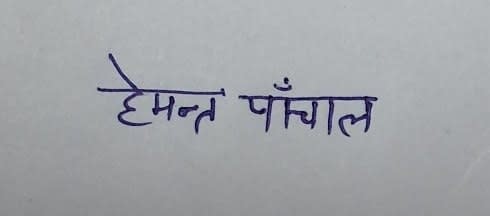 हेमन्त पाँचाल